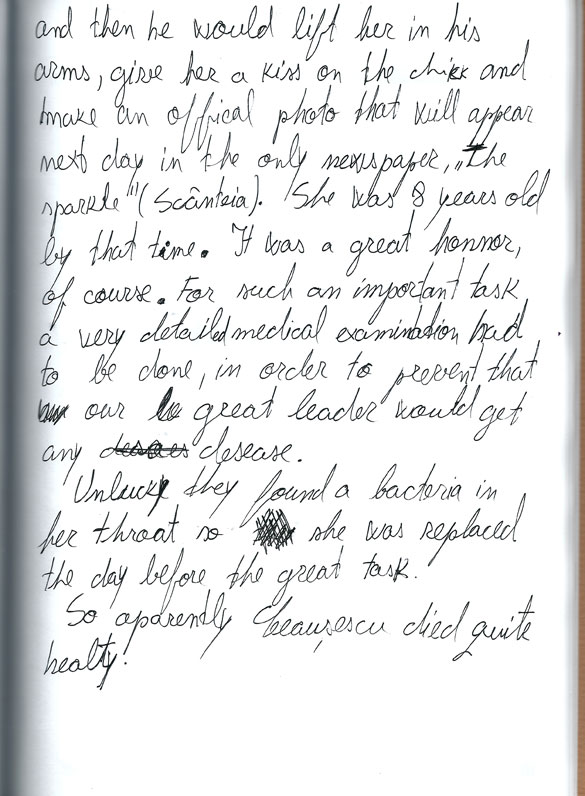 and then he would lift her in his
arms, give her a kiss on the chikk and
make an offical photo that will appear
next day in the only newspaper, „The
sparkle" (Scânteia). She was 8 years old
by that time. It was a great honnor,
of course. For such an important task
a very detailed medical examination had
to be done, in order to prevent that
our great leader would get
any desease.
Unlucky they found a bacteria in
her throat so she was replaced
the day before the great task.
So aparently Ceaușescu died quite
healty!